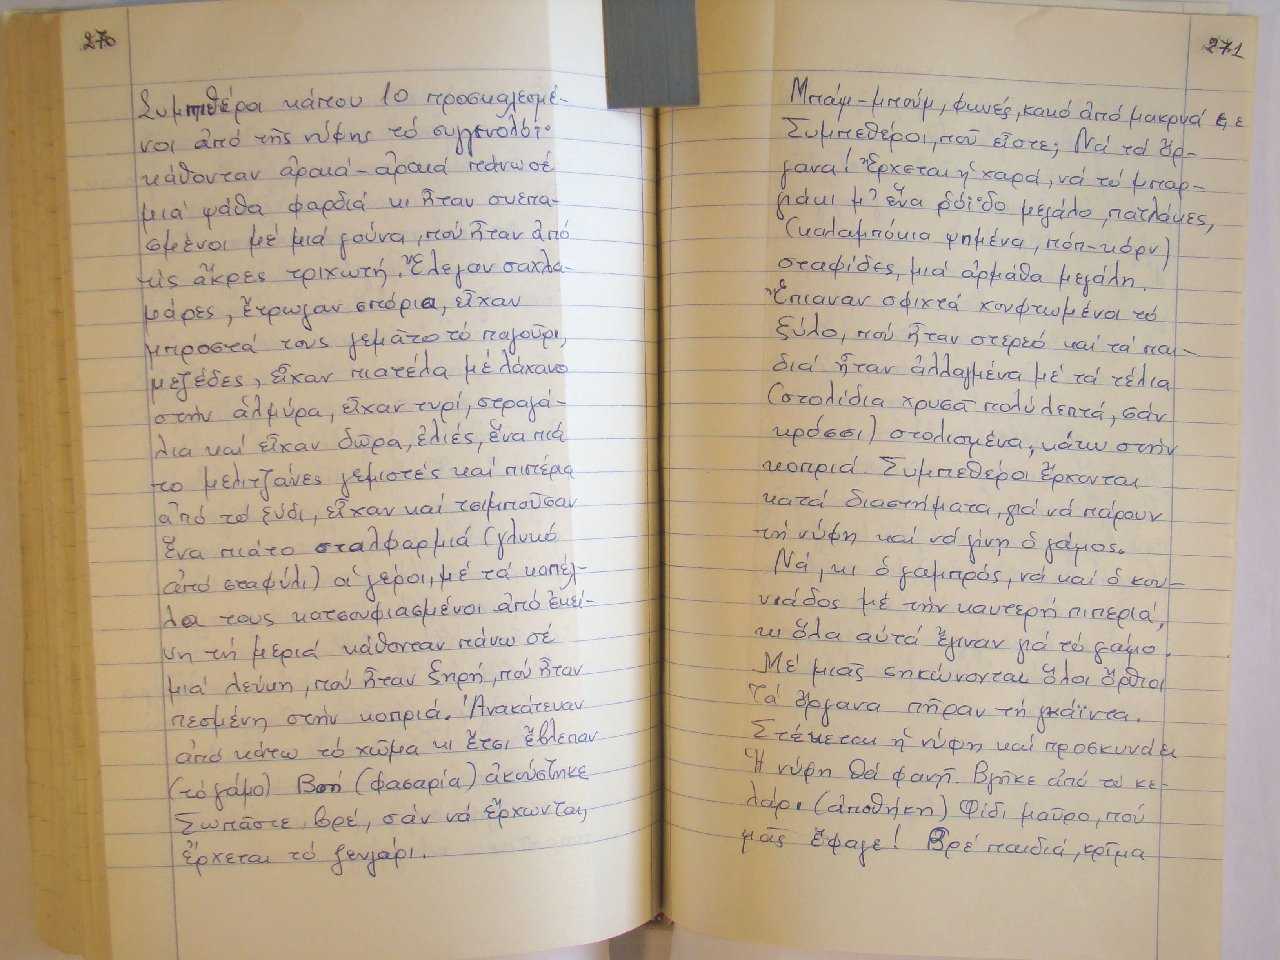 270
Συμπεθέροι κάπου 10 προσκαλεσμέ-
νοι ἀπό τῆς νύφης τό συγγενολόϊ·
κάθονταν ἀραιά-ἀραιά πάνω σέ
μιά ψάθα φαρδιά κι ἦταν σκεπα-
σμένοι μέ μιά γούνα, πού ἦταν ἀπό
τίς ἄκρες τριχωτή. Ἔλεγαν σαχλα-
μάρες, ἔτρωγαν σπόρια, εἶχαν
μπροστά τους γεμᾶτο τό παγοῦρι,
μεζέδες, εἶχαν πιατέλα μέ λάχανο
στήν ἁλμύρα, εἶχαν τυρί, στραγά-
λια καί εἶχαν δῶρα, ἐλιές, ἕνα πιά
το μελιτζάνες γεμιστές καί πιπέρια
ἀπό τό ξύδι, εἶχαν καί τσιμποῦσαν
ἕνα πιάτο σταλφαρμιά (γλυκό
ἀπό σταφύλι) οἱ γέροι, μέ τά καπέλ-
λα τους κατσουφιασμένοι ἀπό ἐκεί-
νη τή μεριά κάθονταν πάνω σέ
μιά λεύκη, πού ἦταν ξηρή, πού ἦταν
πεσμένη στήν κοπριά. Ἀνακάτευαν
ἀπό κάτω τό χῶμα κι ἔτσι ἔβλεπαν
(τό γάμο) Βοή (φασαρία) ἀκούστηκε
Σωπᾶστε βρέ, σάν νά ἔρχωνται,
ἔρχεται τό ζευγάρι.
271
Μπάμ-μπούμ, φωνές, κακό ἀπό μακρυά
Συμπεθέροι, ποῦ εἶστε; Νά τά ὄρ-
γανα! Ἔρχεται ἡ χαρά, νά τό μπαρ-
γιάκι μ' ἕνα ρόϊδο μεγάλο, πατλάκες,
(καλαμπόκια ψημένα, πόπ-κόρν)
σταφίδες, μιά ἁρμάθα μεγάλη.
Ἔπιαναν σφιχτά χουφτωμένοι τό
ξύλο, πού ἦταν στερεό καί τά παι-
διά ἦταν ἀλλαγμένα μέ τά τέλια
(στολίδια χρυσᾶ πολύ λεπτά, σάν
κρόσσι) στολισμένα, κάτω στήν
κοπριά. Συμπεθέροι ἔρχονται
κατά διαστήματα, γιά νά πάρουν
τή νύφη καί νά γίνη ὁ γάμος.
Νά, κι ὁ γαμπρός, νά καί ὁ κου-
νιάδος μέ τήν καυτερή πιπεριά,
κι ὅλα αὐτά ἔγιναν γιά τό γάμο.
Μέ μιᾶς σηκώνονται ὅλοι ὄρθιοι
Τά ὄργανα πῆραν τή γκάϊντα.
Στέκεται ἡ νύφη καί προσκυνάει
Ἡ νύφη θά φανῆ. Βγῆκε ἀπό τό κε-
λάρι (ἀποθήκη) Φίδι μαῦρο, πού
μᾶς ἔφαγε! Βρέ παιδιά, κρῖμα